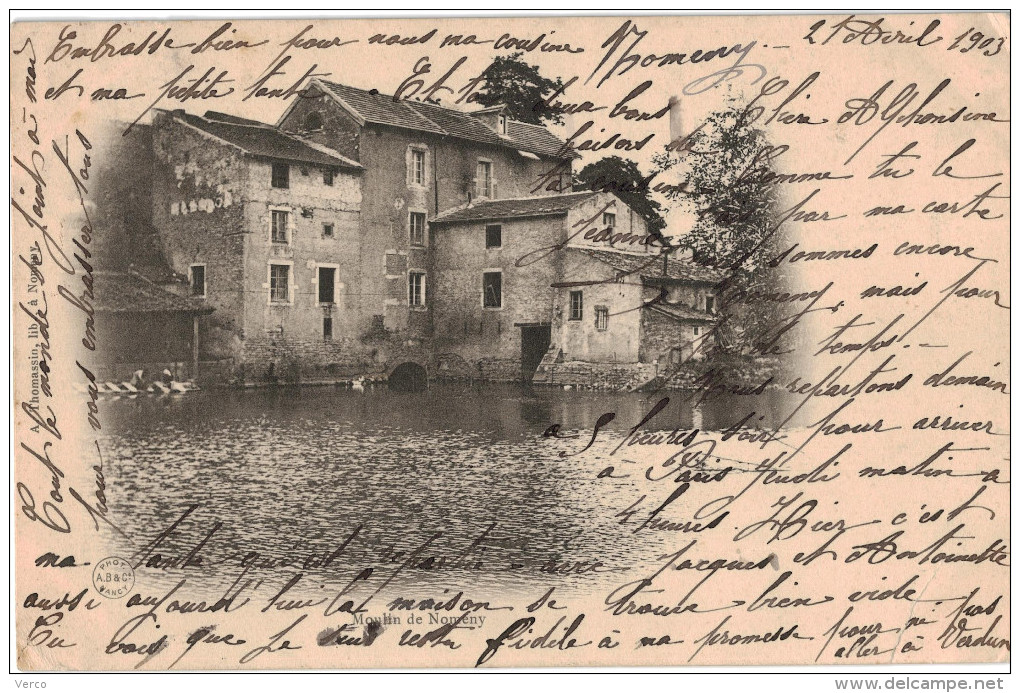 Nomeny – 21 Avril 1903
Chère Alphonsine
Comme tu le
vois par ma carte
nous sommes encore
à Nomeny, mais pour
peu de temps. –
Nous repartons demain
à 5 heures soir pour arriver
à Paris Jeudi matin à
4 heures. Hier c'est
ma tante qui est repartie avec Jacques et Antoinette
aussi aujourd'hui la maison se trouve bien vide
Tu vois que je suis resté fidèle à ma promesse pour ni pas
aller à Verdun
Tout le monde se joint à moi
pour vous embrasser tous
Embrasse bien pour nous ma cousine
et ma petite tante. Et toi
deux bons
baisers de
ta cousine
Jeanne
A. Thomassin, lib. à Nomeny
PHOT. A.B & Cie NANCY
Moulin de Nomeny
Verco
http://www.delcampe.net